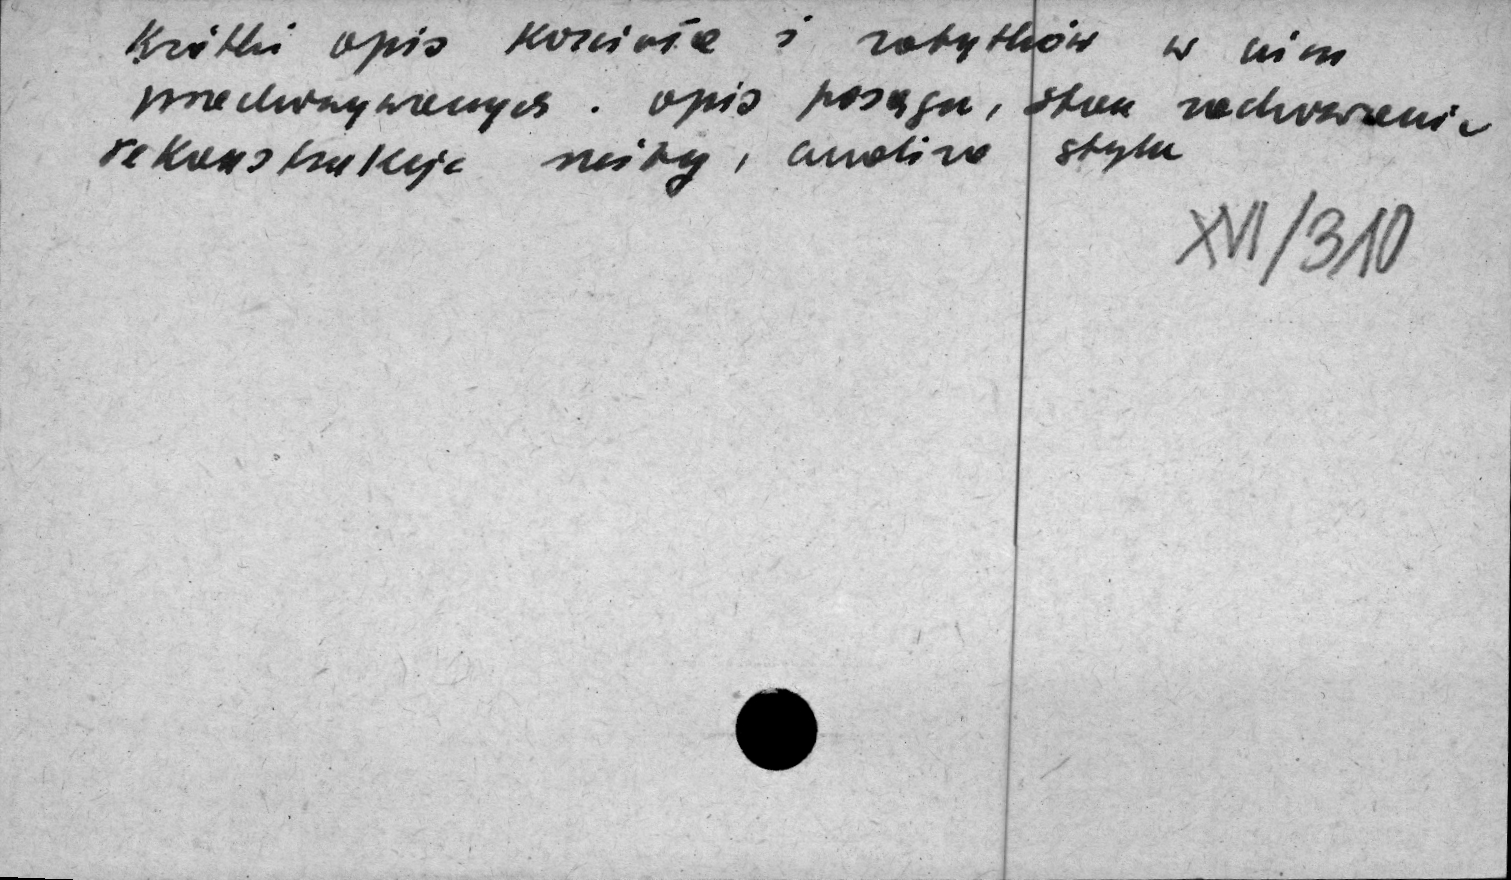 Krótki opis kościoła i zabytków w nim
przechowywanych. opis posągu, stan zachowania
rekonstrukcja szaty, analiza stylu
XVI/310